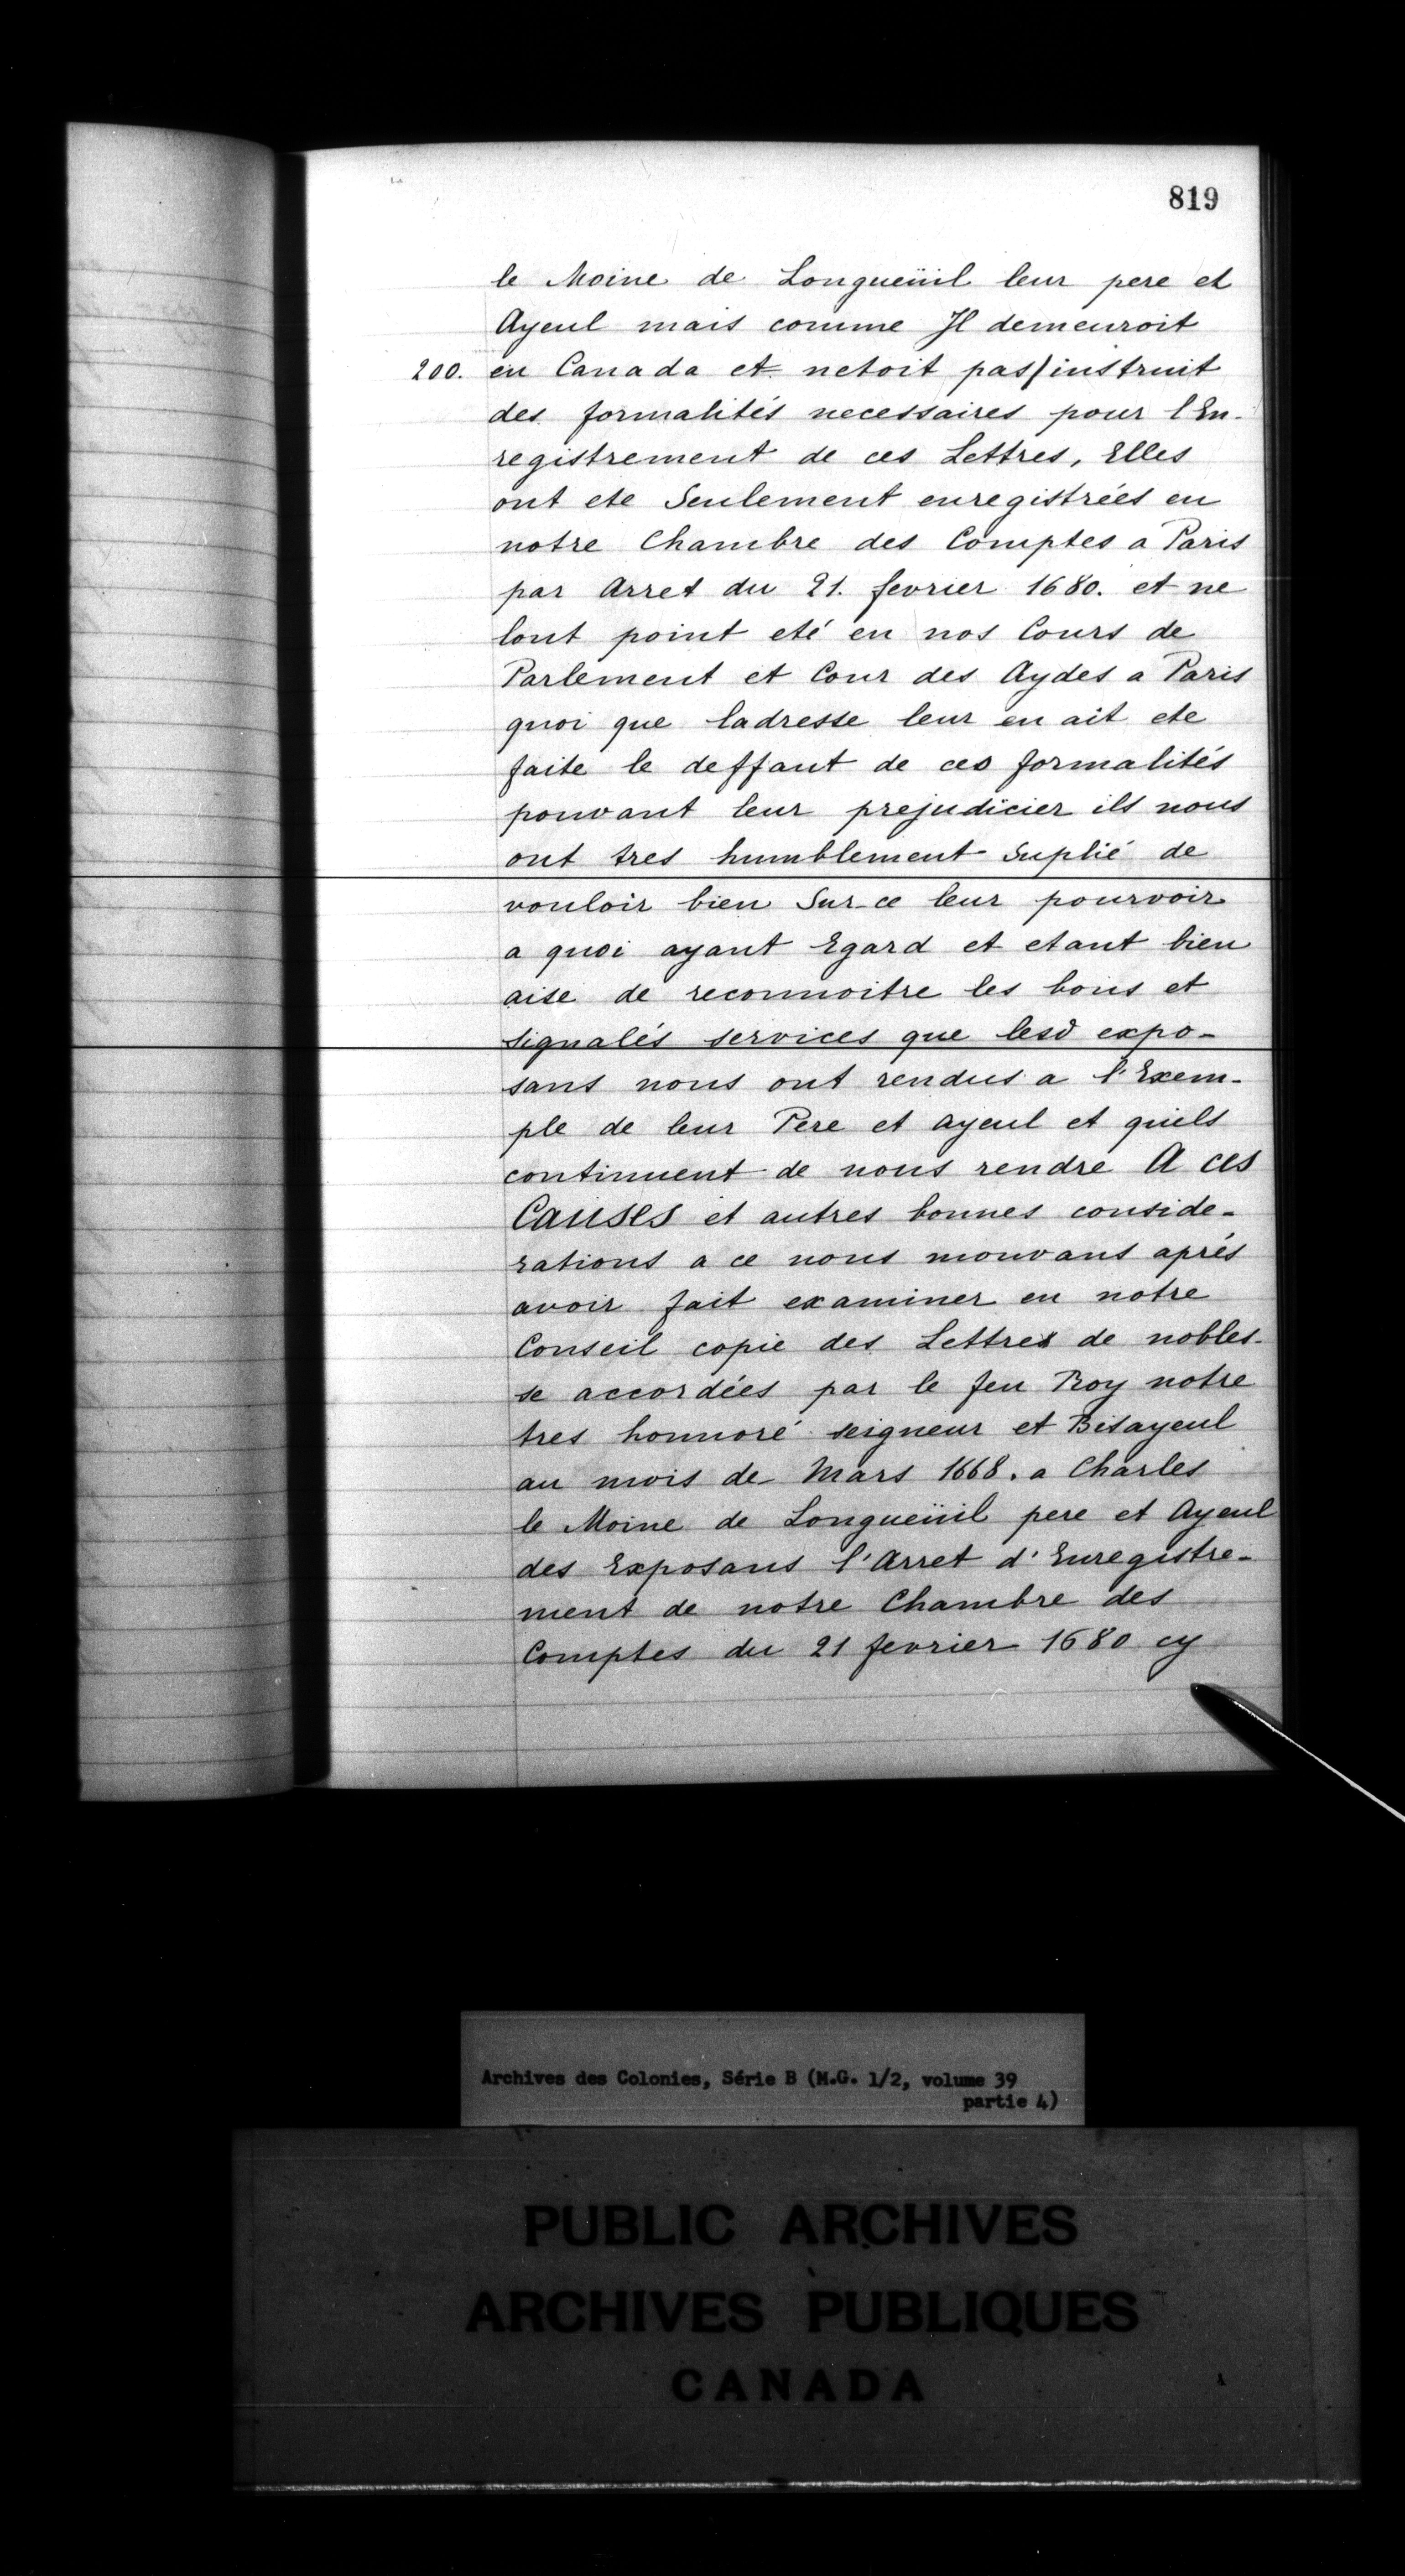 819
le Moine de Longueüil leur pere et
Ayeul mais comme Il demeuroit
200. en Canada et netoit pas/instruit
des formalités necessaires pour l'En-
registrement de ces Lettres, Elles
ont ete Seulement enregistrées en
notre Chambre des Comptes a Paris
par Arret du 21. fevrier 1680. et ne
lont point eté en nos Cours de
Parlement et Cour des Aydes a Paris
quoi que ladresse leur en ait ete
faite le deffaut de ces formalités
pouvant leur prejudicier ils nous
ont tres humblement Suplié de
vouloir bien Sur ce leur pourvoir
a quoi ayant Egard et etant bien
aise de reconnoitre les bons et
signalés services que lesd expo-
sans nous ont rendus a l'Exem-
ple de leur Pere et ayeul et quils
continuent de nous rendre A ces
Causes et autres bonnes conside-
rations a ce nous mouvans aprés
avoir fait examiner en notre
Conseil copie des Lettres de nobles-
se accordées par le feu Roy notre
tres honnoré seigneur et Bisayeul
au mois de Mars 1668. a Charles
le Moine de Longueüil pere et Ayeul
des Exposans l'Arret d'Enregistre-
ment de notre Chambre des
Comptes du 21 fevrier 1680 cy
Archives des Colonies, Série B (M.G. 1/2, volume 39
partie 4)
PUBLIC ARCHIVES
ARCHIVES PUBLIQUES
CANADA